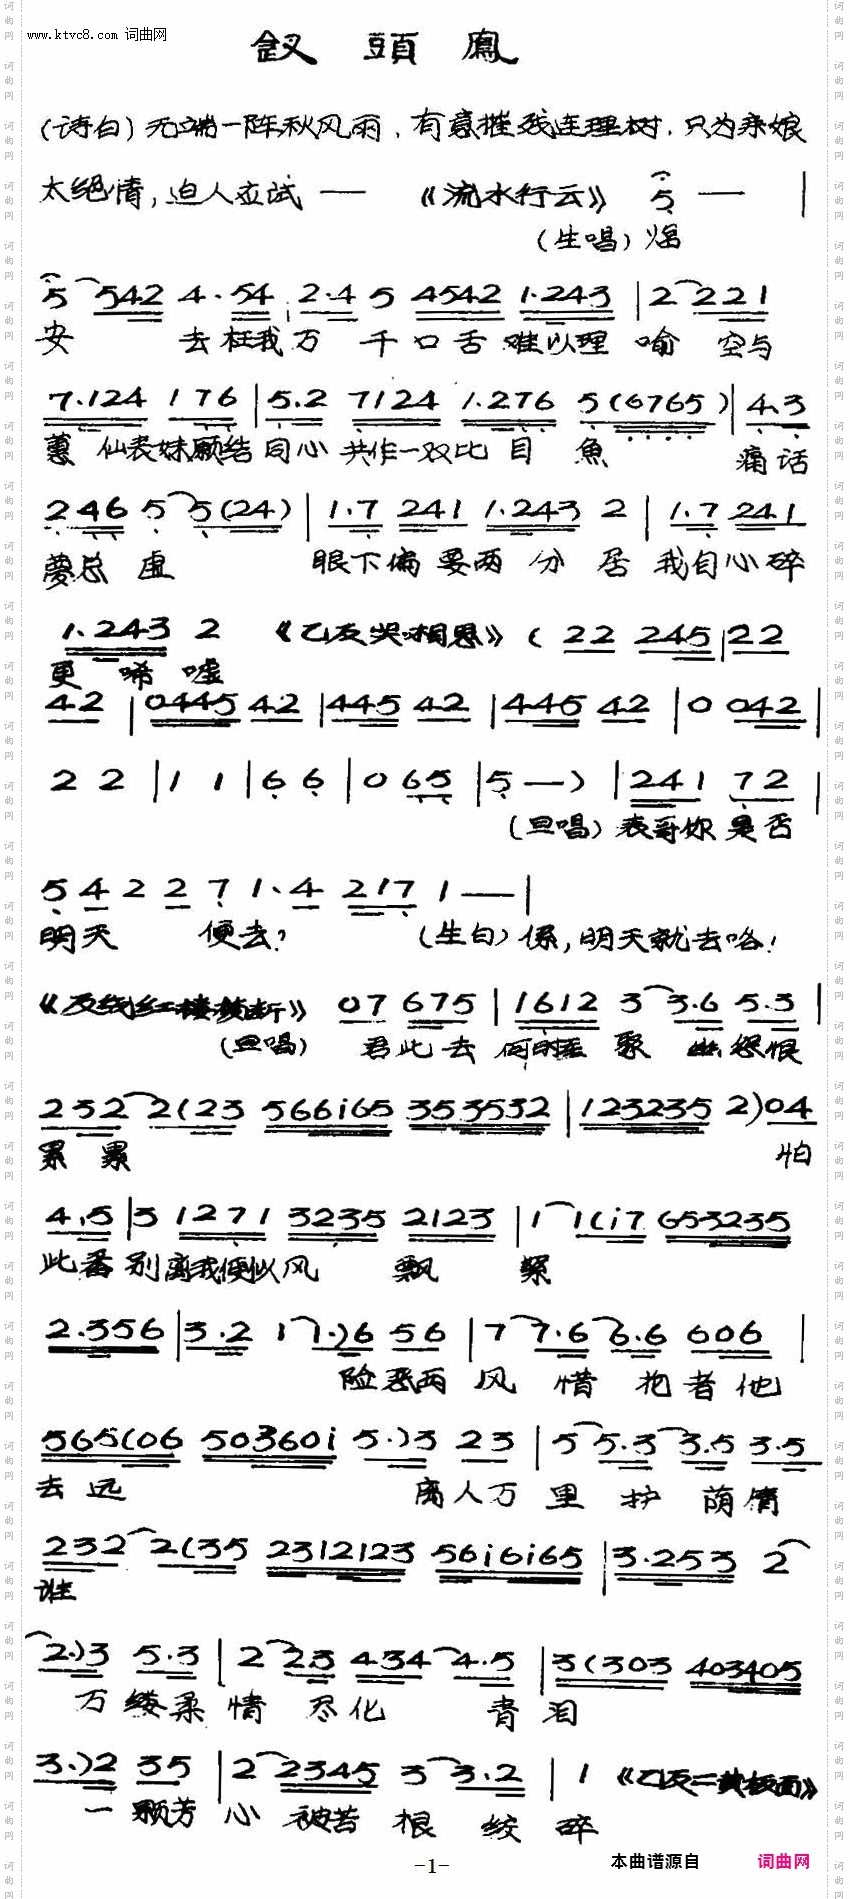 www.ktvc8.com 词曲网
釵 頭 鳳
(诗白) 无端一阵秋风雨，有意摧残连理树，只为亲娘
太绝情，迫人应试 — 《流水行云》 5 — |
(生唱) 焔
5 5 4 2 4 · 5 4 2 · 4 5 4 5 4 2 1 · 2 4 3 | 2 2 2 1
安 去枉我万 千口舌难以理 喻 空与
7 · 1 2 4 1 7 6 | 5 · 2 7 1 2 4 1 · 2 7 6 5 ( 6 7 6 5 ) | 4 · 3
蕙 仙表妹愿结同心 共作一双比目 魚 痛话
2 4 6 5 5 ( 2 4 ) | 1 · 7 2 4 1 1 · 2 4 3 2 | 1 · 7 2 4 1
夢总 虚 眼下偏要两 分 居 我自心碎
1 · 2 4 3 2 《乙反哭相思》 ( 2 2 2 4 5 | 2 2
更 唏 嘘
4 2 | 0 4 4 5 4 2 | 4 4 5 4 2 | 4 4 5 4 2 | 0 0 4 2 |
2 2 | 1 1 | 6 6 | 0 6 5 | 5 — ) | 2 4 1 7 2 |
(旦唱) 表哥你是否
5 4 2 2 7 1 · 4 2 1 7 1 — |
明天 便去? (生白) 係，明天就去咯!
《反线红楼》 0 7 6 7 5 | 1 6 1 2 3 3 · 6 5 · 3 |
(旦唱) 君此去 何时 聚 怨恨
2 3 2 2 ( 2 3 5 6 6 i 6 5 3 5 3 5 3 2 | 1 2 3 2 3 5 2 ) 0 4
累 累 怕
4 · 5 | 3 1 2 7 1 3 2 3 5 2 1 2 3 | 1 1 ( i 7 6 5 3 2 3 5
此番别离我便似风 飘 絮
2 · 3 5 6 | 3 · 2 1 1 · ) 6 5 6 | 7 7 · 6 6 · 6 6 0 6 |
险恶两 风 惜 抱者他
5 6 5 ( 0 6 5 0 3 6 0 i 5 · ) 3 2 3 | 5 5 · 3 3 · 5 3 · 5
去远 离人万 里 护 荫情
2 3 2 2 ( 3 5 2 3 1 2 1 2 3 5 6 i 6 i 6 5 | 3 · 2 5 3 2
谁
2 · ) 3 5 · 3 | 2 2 3 4 3 4 4 · 5 | 3 ( 3 0 3 4 0 3 4 0 5
万缕柔 情 尽化 青 泪
3 · ) 2 3 5 | 2 2 3 4 5 3 3 · 2 | 1 《乙反二黄板面》
一颗芳 心 被苦 根 绞 碎
-1-
本曲谱源自 词曲网